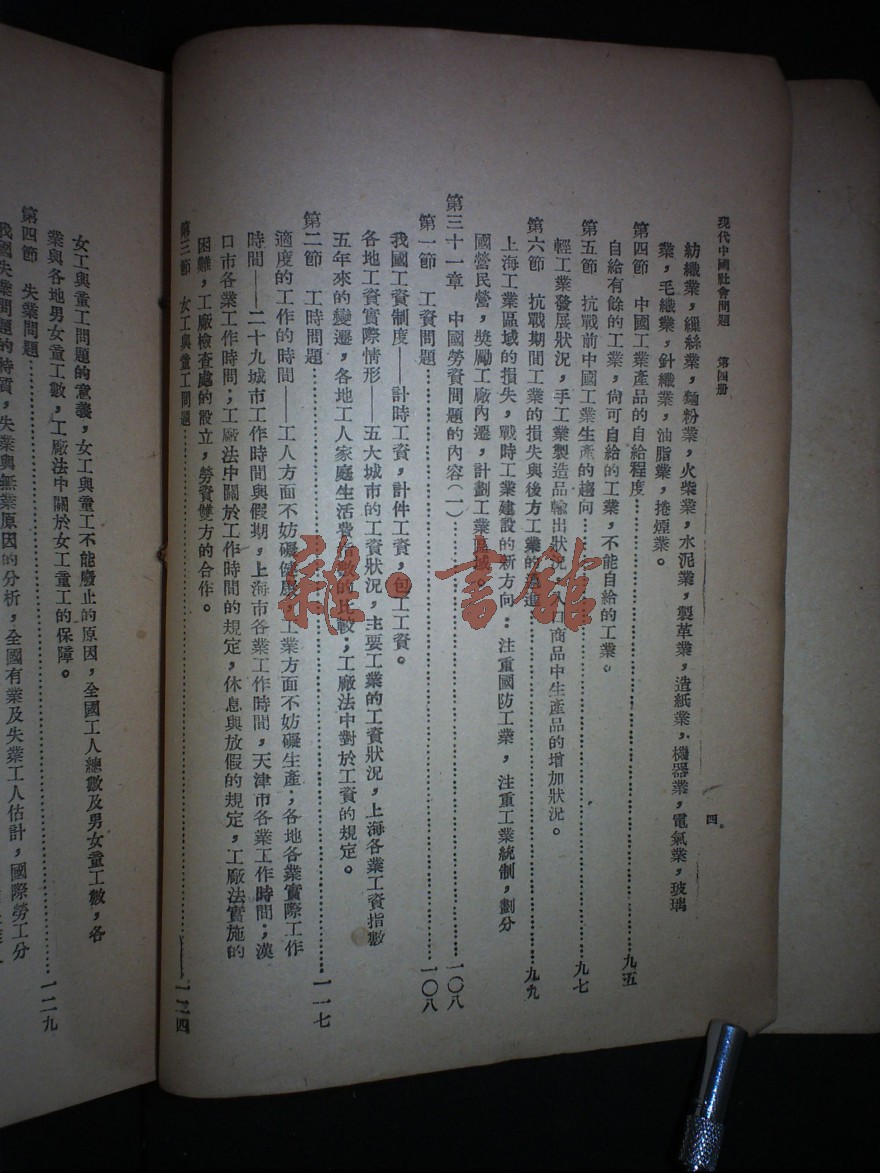 現代中國社會問題　第四册
四
紡織業，繅絲業，麵粉業，火柴業，水泥業，製革業，造紙業，機器業，電氣業，玻璃
業，毛織業，針織業，油脂業，捲煙業。
第四節　中國工業產品的自給程度……九五
自給有餘的工業，尙可自給的工業，不能自給的工業。
第五節　抗戰前中國工業生產的趨向……九七
輕工業發展狀況，手工業製造品輸出狀況，入口商品中生產品的增加狀況。
第六節　抗戰期間工業的損失與後方工業的……九九
上海工業區域的損失，戰時工業建設的新方向：注重國防工業，注重工業統制，劃分
國營民營，獎勵工廠內遷，計劃工業區域。
第三十一章　中國勞資問題的內容（一）……一〇八
第一節　工資問題……一〇八
我國工資制度——計時工資，計件工資，包工工資。
各地工資實際情形　五大城市的工資狀況，主要工業的工資狀況，上海各業工資指數
五年來的變遷，各地工人家庭生活費指數的比較；工廠法中對於工資的規定。
第二節　工時問題……一一七
適度的工作的時間——工人方面不妨礙健康，工業方面不妨礙生產；各地各業實際工作
時間——二十九城市工作時間與假期，上海市各業工作時間，天津市各業工作時間；漢
口市各業工作時間；工廠法中關於工作時間的規定，休息與放假的規定，工廠法實施的
困難，工廠檢查處的設立，勞資雙方的合作。
第三節　女工與童工問題……一二四
女工與童工問題的意義，女工與童工不能廢止的原因，全國工人總數及男女童工數，各
業與各地男女童工數，工廠法中關於女工童工的保障。
第四節　失業問題……一二九
我國失業問題的特質，失業與無業原因的分析，全國有業及失業工人估計，國際勞工分
雜·書館